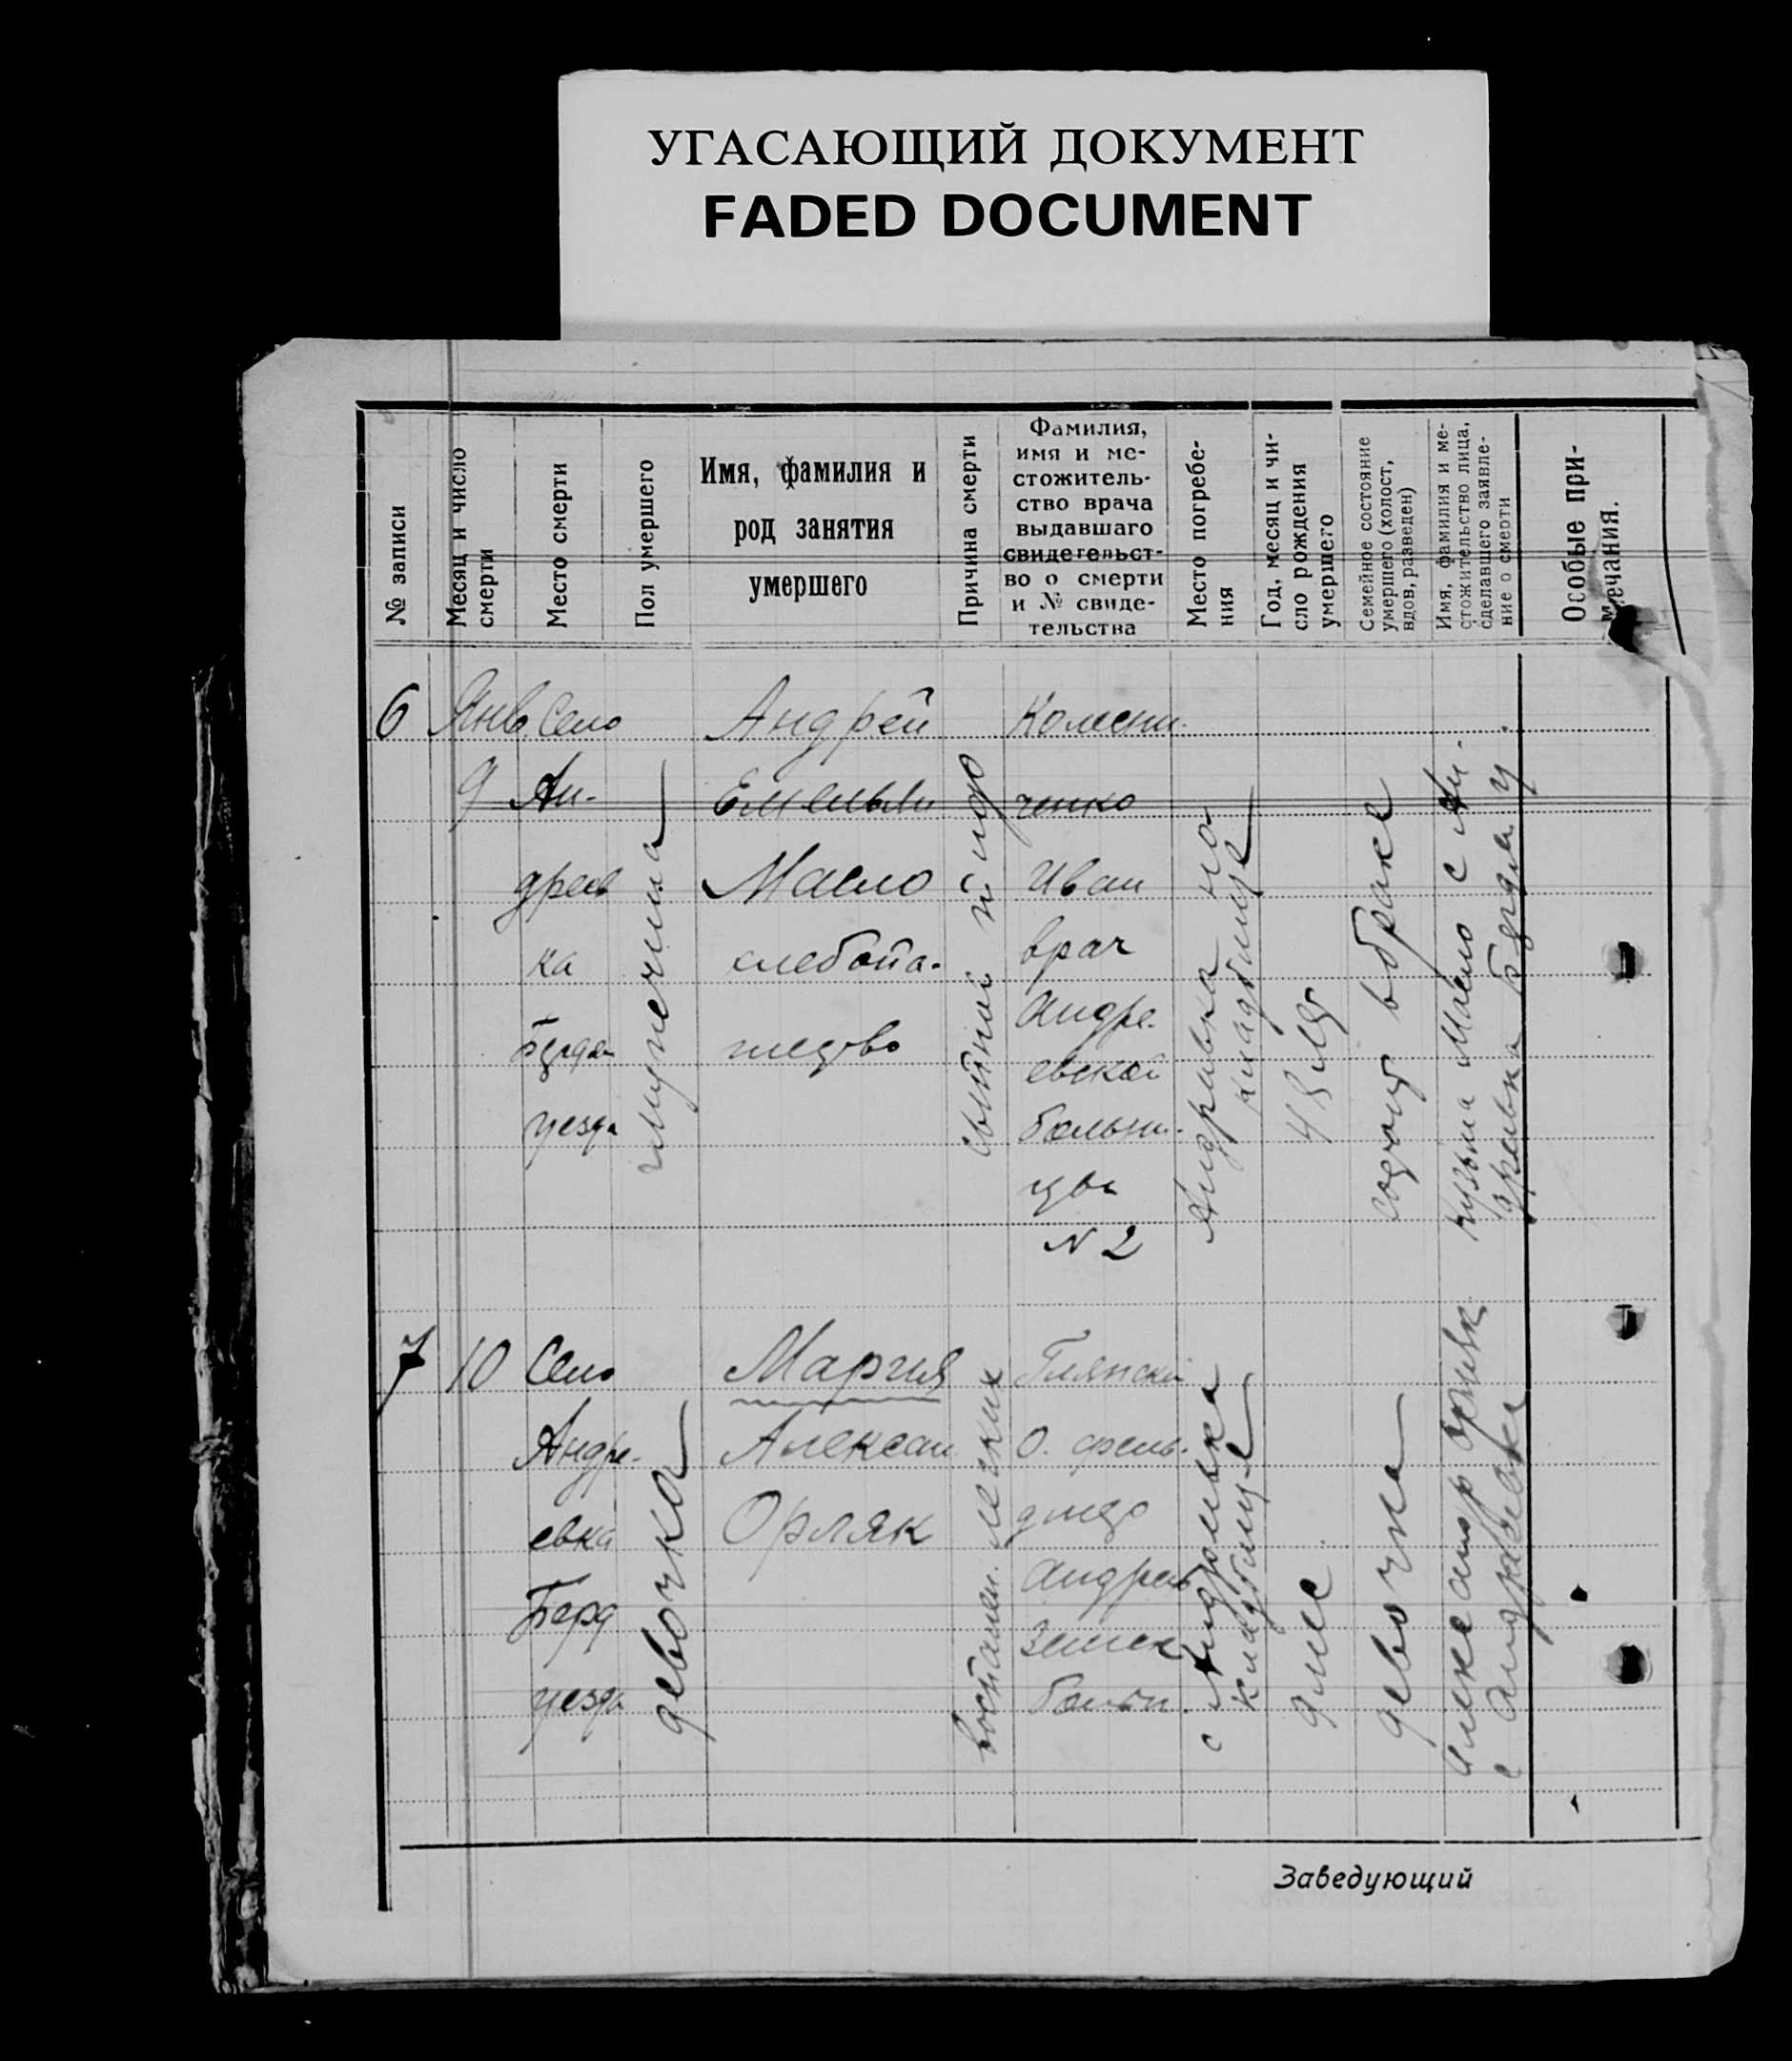 УГАСАЮЩИЙ ДОКУМЕНТ
FADED DOCUMENT
№ записи
Месяц и число
смерти
Место смерти
Пол умершего
Имя, фамилия и
род занятия
умершего
Причина смерти
Фамилия,
имя и ме-
стожитель-
ство врача
выдавшаго
свидетельст-
во о смерти
и № свиде-
тельства
Место погребе-
ния
Год, месяц и чи-
сло рождения
умершего
Семейное состояние
умершего (холост,
вдов, разведен)
Имя, фамилия и ме-
стожительство лица,
сделавшего заявле-
ние о смерти
Особые при-
мечания.
6
Янв.
9
Село
Ан-
дреев
ка
Бердян
уезда
мужчина
Андрей
Емельян
Масло
хлебопа-
шество
сыпной тиф
Колесни-
ченко
Иван
врач
Андре-
евской
больни-
цы
N 2
Андреевка на
кладбище
48 лет
в браке
Кузьма Масло с Ан-
дреевка Бердян у.
7
10
Село
Андре-
евка
Берд
уезда
девочка
Мария
Алексан
Орляк
воспален. легких
О. фель-
дшер
Андреев
Земск
больн.
с Андреевка
кладбище
9 мес
девочка
Александр Орляк
с Андреевка
Заведующий